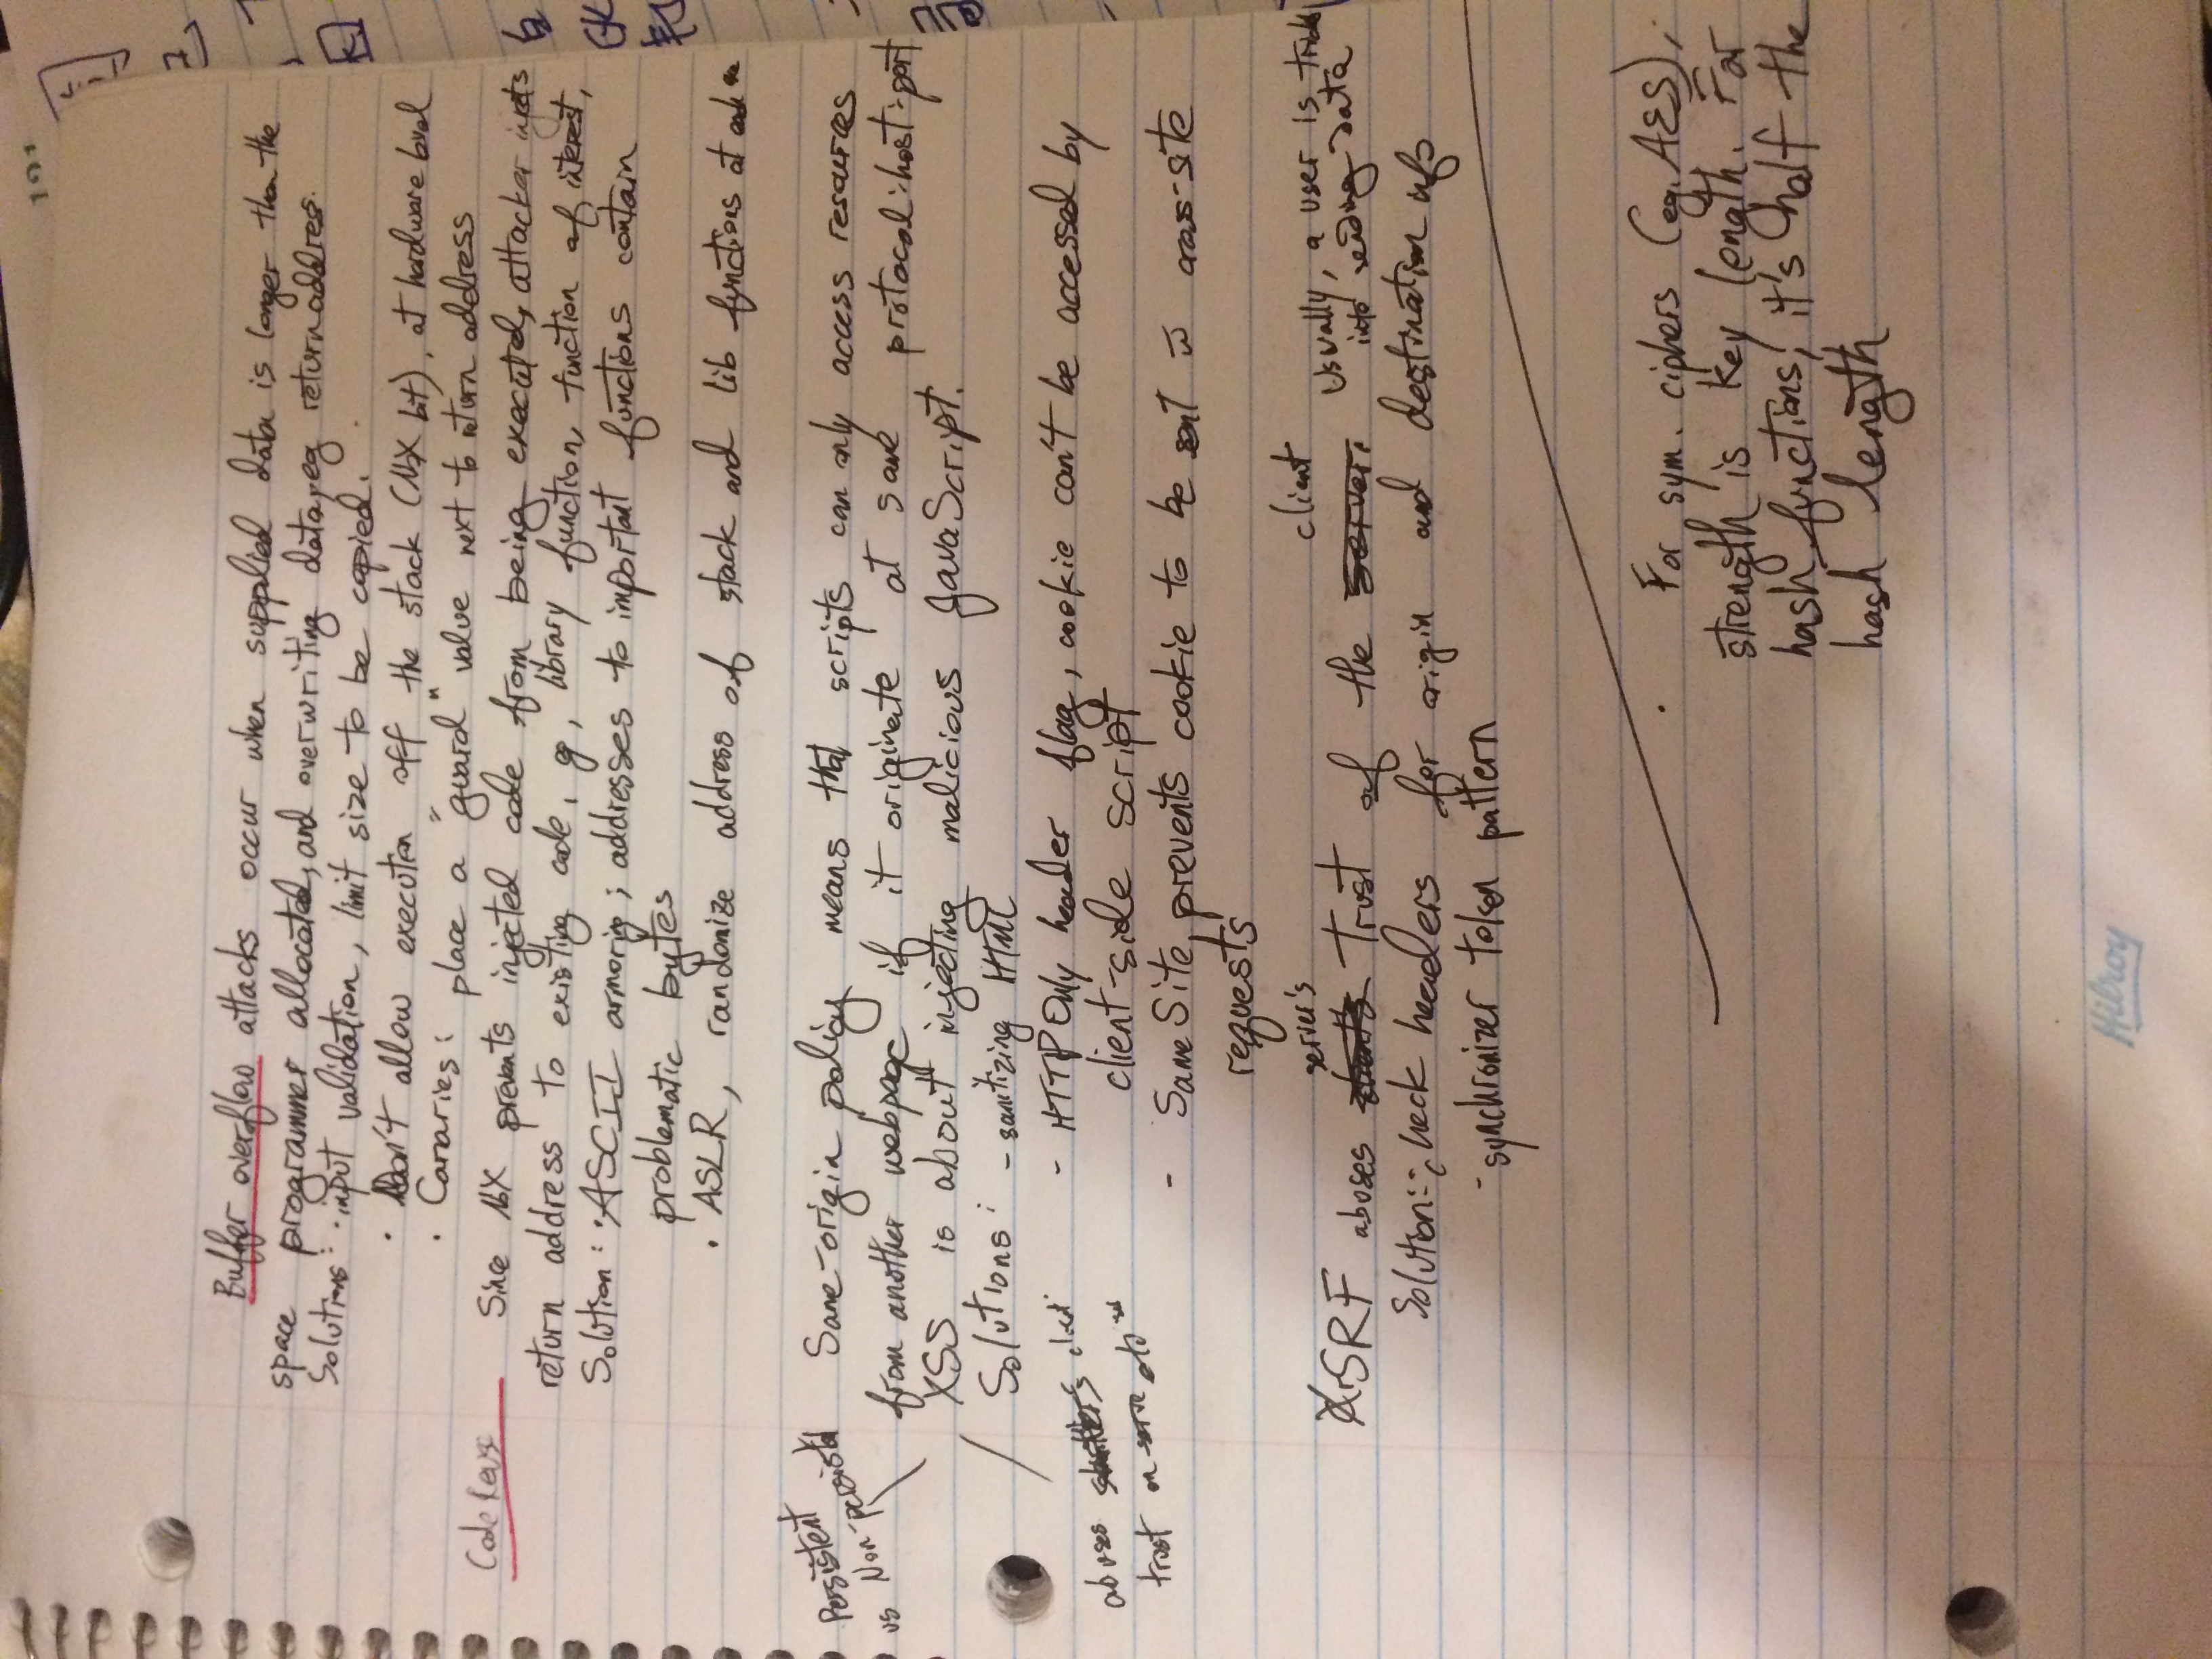 Buffer overflow attacks occur when supplied data is longer than the
space programmer allocated, and overwriting data, eg return addres.
Solutions: · input validation, limit size to be copied.
· Don't allow execution off the stack (NX bit), at hardware level
· Canaries: place a "guard" value next to return address
Code Reuse
Since NX prevents injected code from being executed, attacker injects
return address to existing code, eg, library function, function of interest,
Solution: · ASCII armoring; addresses to important functions contain
problematic bytes
· ASLR, randomize address of stack and lib functions at each
Persistent
vs Non-persistent
Same-origin policy means that scripts can only access resources
from another webpage if it originate at same protocol:host:port
XSS is about injecting malicious JavaScript.
Solutions: - sanitizing HTML
- HTTPOnly header flag, cookie can't be accessed by
client-side script
abuses client
trust on
- SameSite, prevents cookie to be sent in cross-site
requests
server's client Usually, a user is tricked
XSRF abuses trust of the server. into sending data
Solution: - check headers for origin and destination info
- synchronizer token pattern
· For sym. ciphers (eg. AES),
strength is key length. For
hash functions, it's half the
hash length
Hilroy